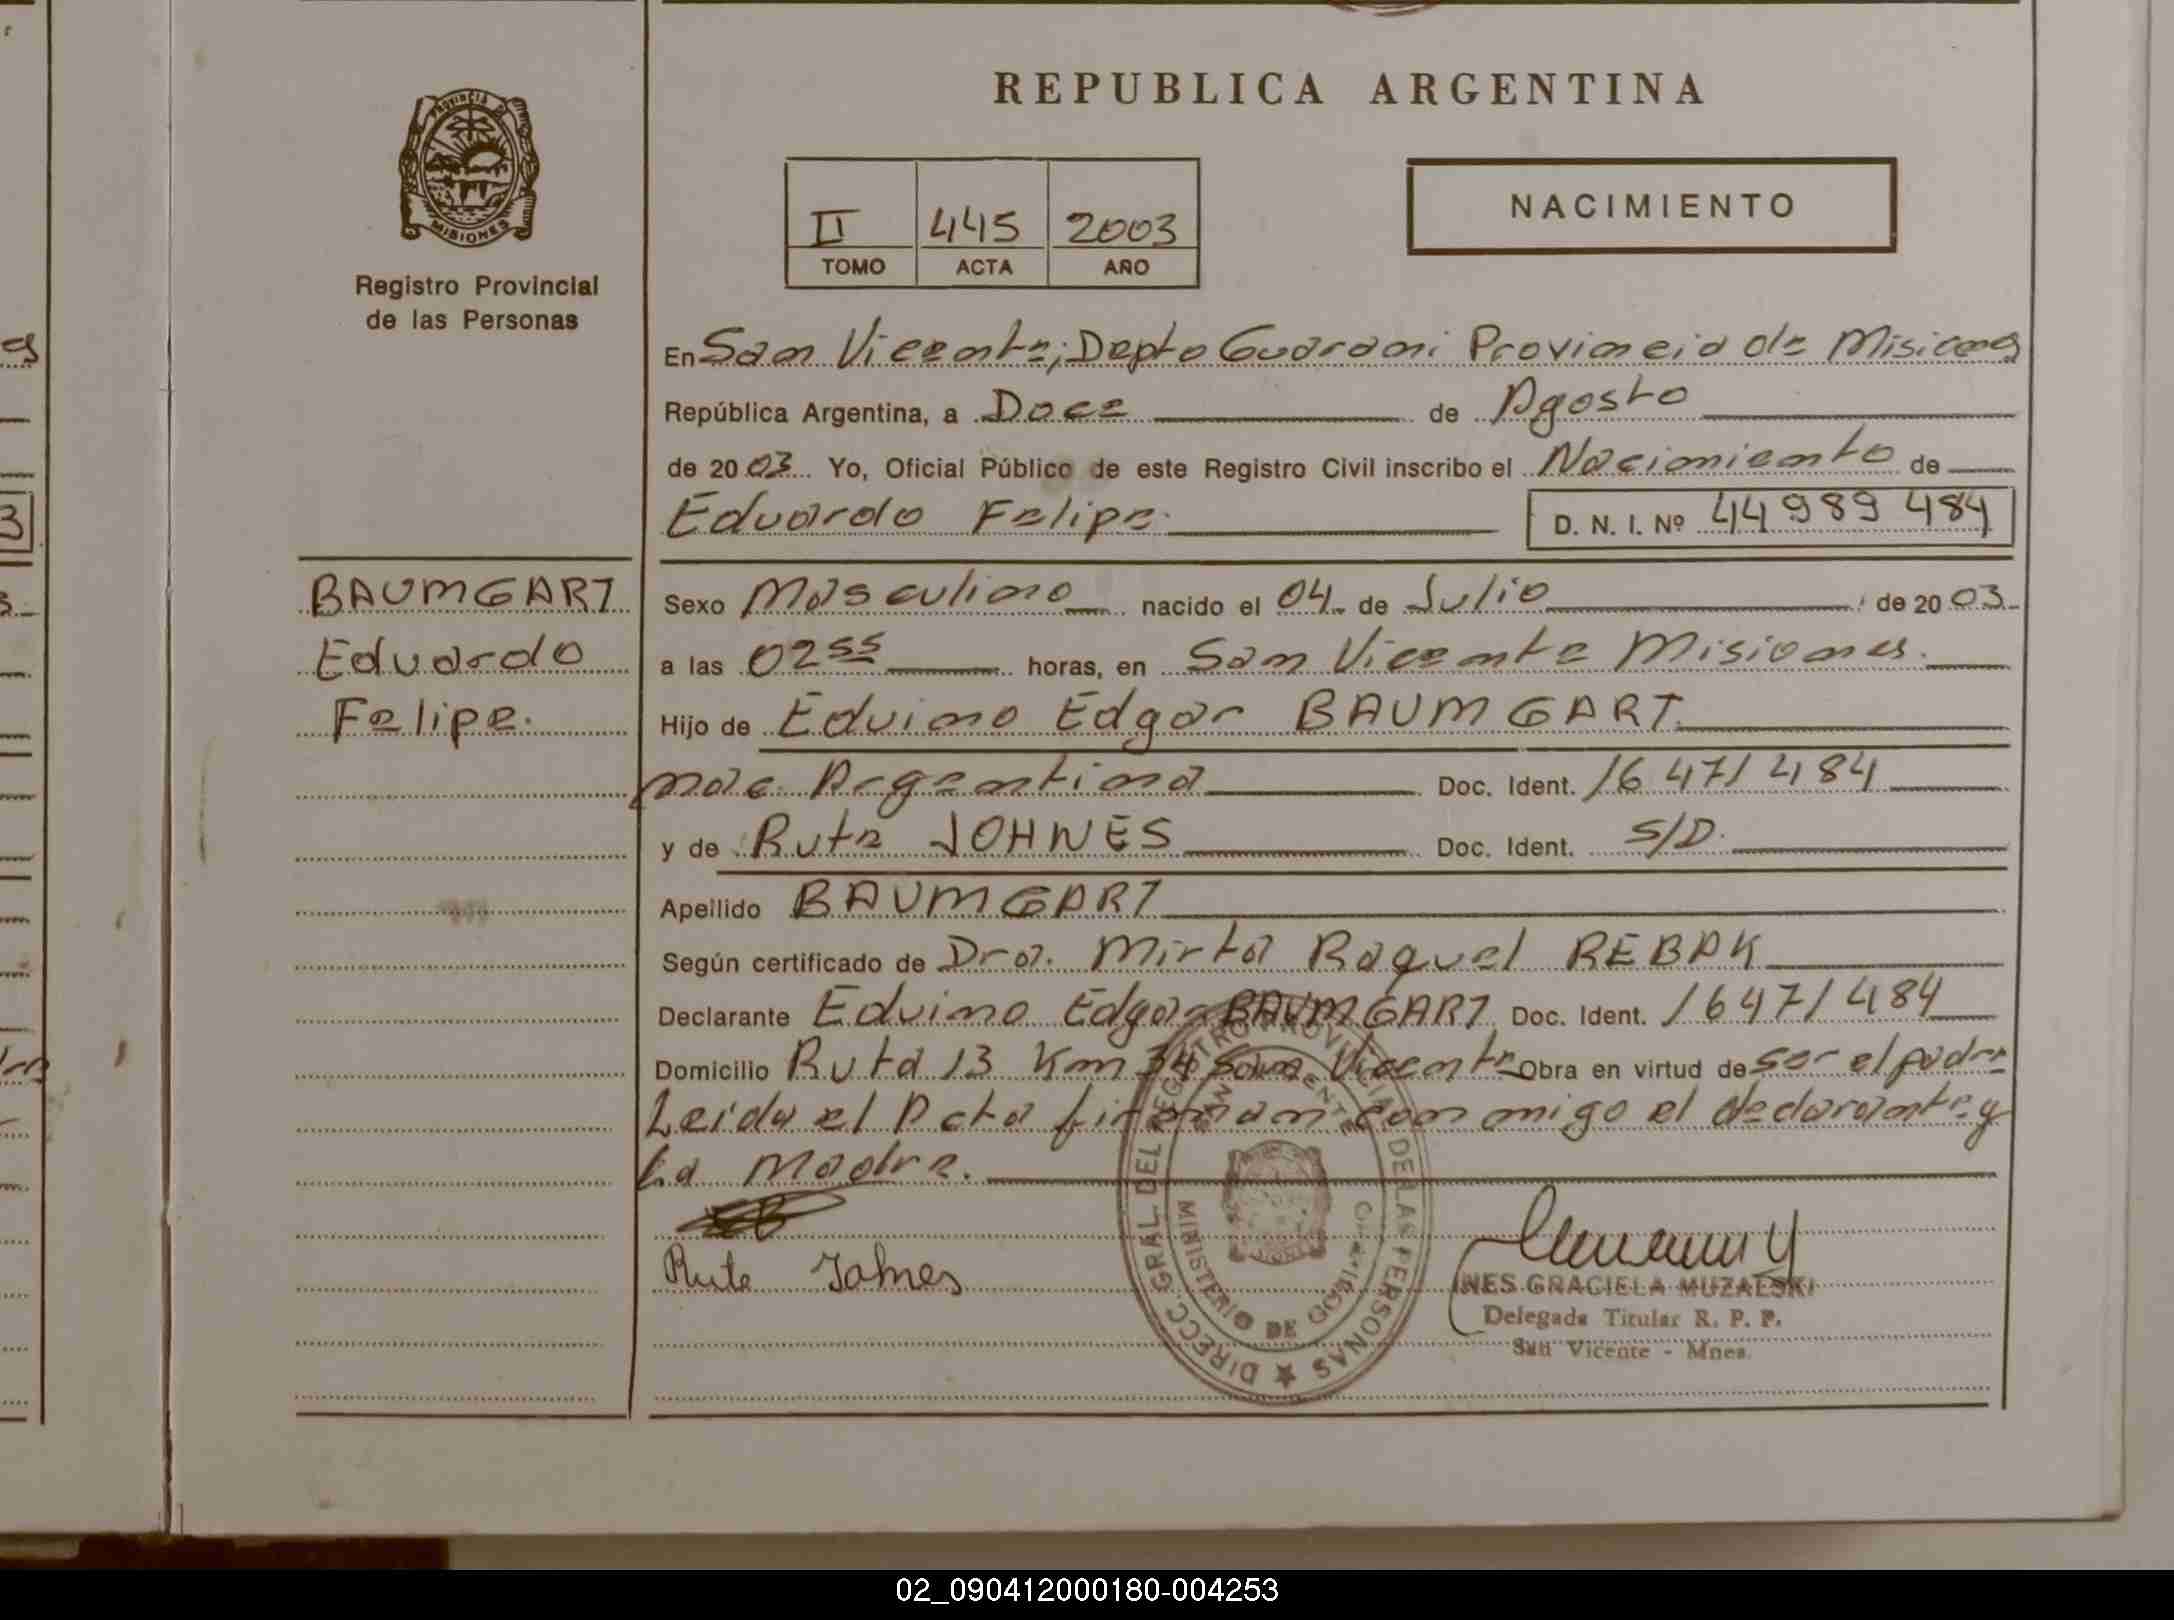 REPUBLICA ARGENTINA
PROVINCIA DE
MISIONES
Registro Provincial
de las Personas
II 445 2003
TOMO ACTA AÑO
NACIMIENTO
En San Vicente; Depto Guarani Provincia de Misiones
República Argentina, a Doce de Agosto
de 2003 Yo, Oficial Público de este Registro Civil inscribo el Nacimiento de
Eduardo Felipe. D. N. I. Nº 44 989 484
BAUMGART
Eduardo
Felipe.
Sexo Masculino nacido el 04 de Julio de 2003
a las 02 55 horas, en San Vicente Misiones.
Hijo de Eduino Edgar BAUMGART
nac. Argentina Doc. Ident. 16471484
y de Rute JOHNES Doc. Ident. S/D.
Apellido BAUMGART
Según certificado de Dra. Mirta Raquel REBAK
Declarante Eduino Edgar BAUMGART Doc. Ident. 16471484
Domicilio Ruta 13 Km 34 San Vicente Obra en virtud de ser el padre
Leida el Acta firman conmigo el declarante y
la madre.
Rute Johnes
DIRECC. GRAL. DEL REGISTRO PROVINCIAL DE LAS PERSONAS
SAN VICENTE
MINISTERIO DE GOBIERNO
INES GRACIELA MUZALSKI
Delegada Titular R. P. P.
San Vicente - Mnes.
02_090412000180-004253